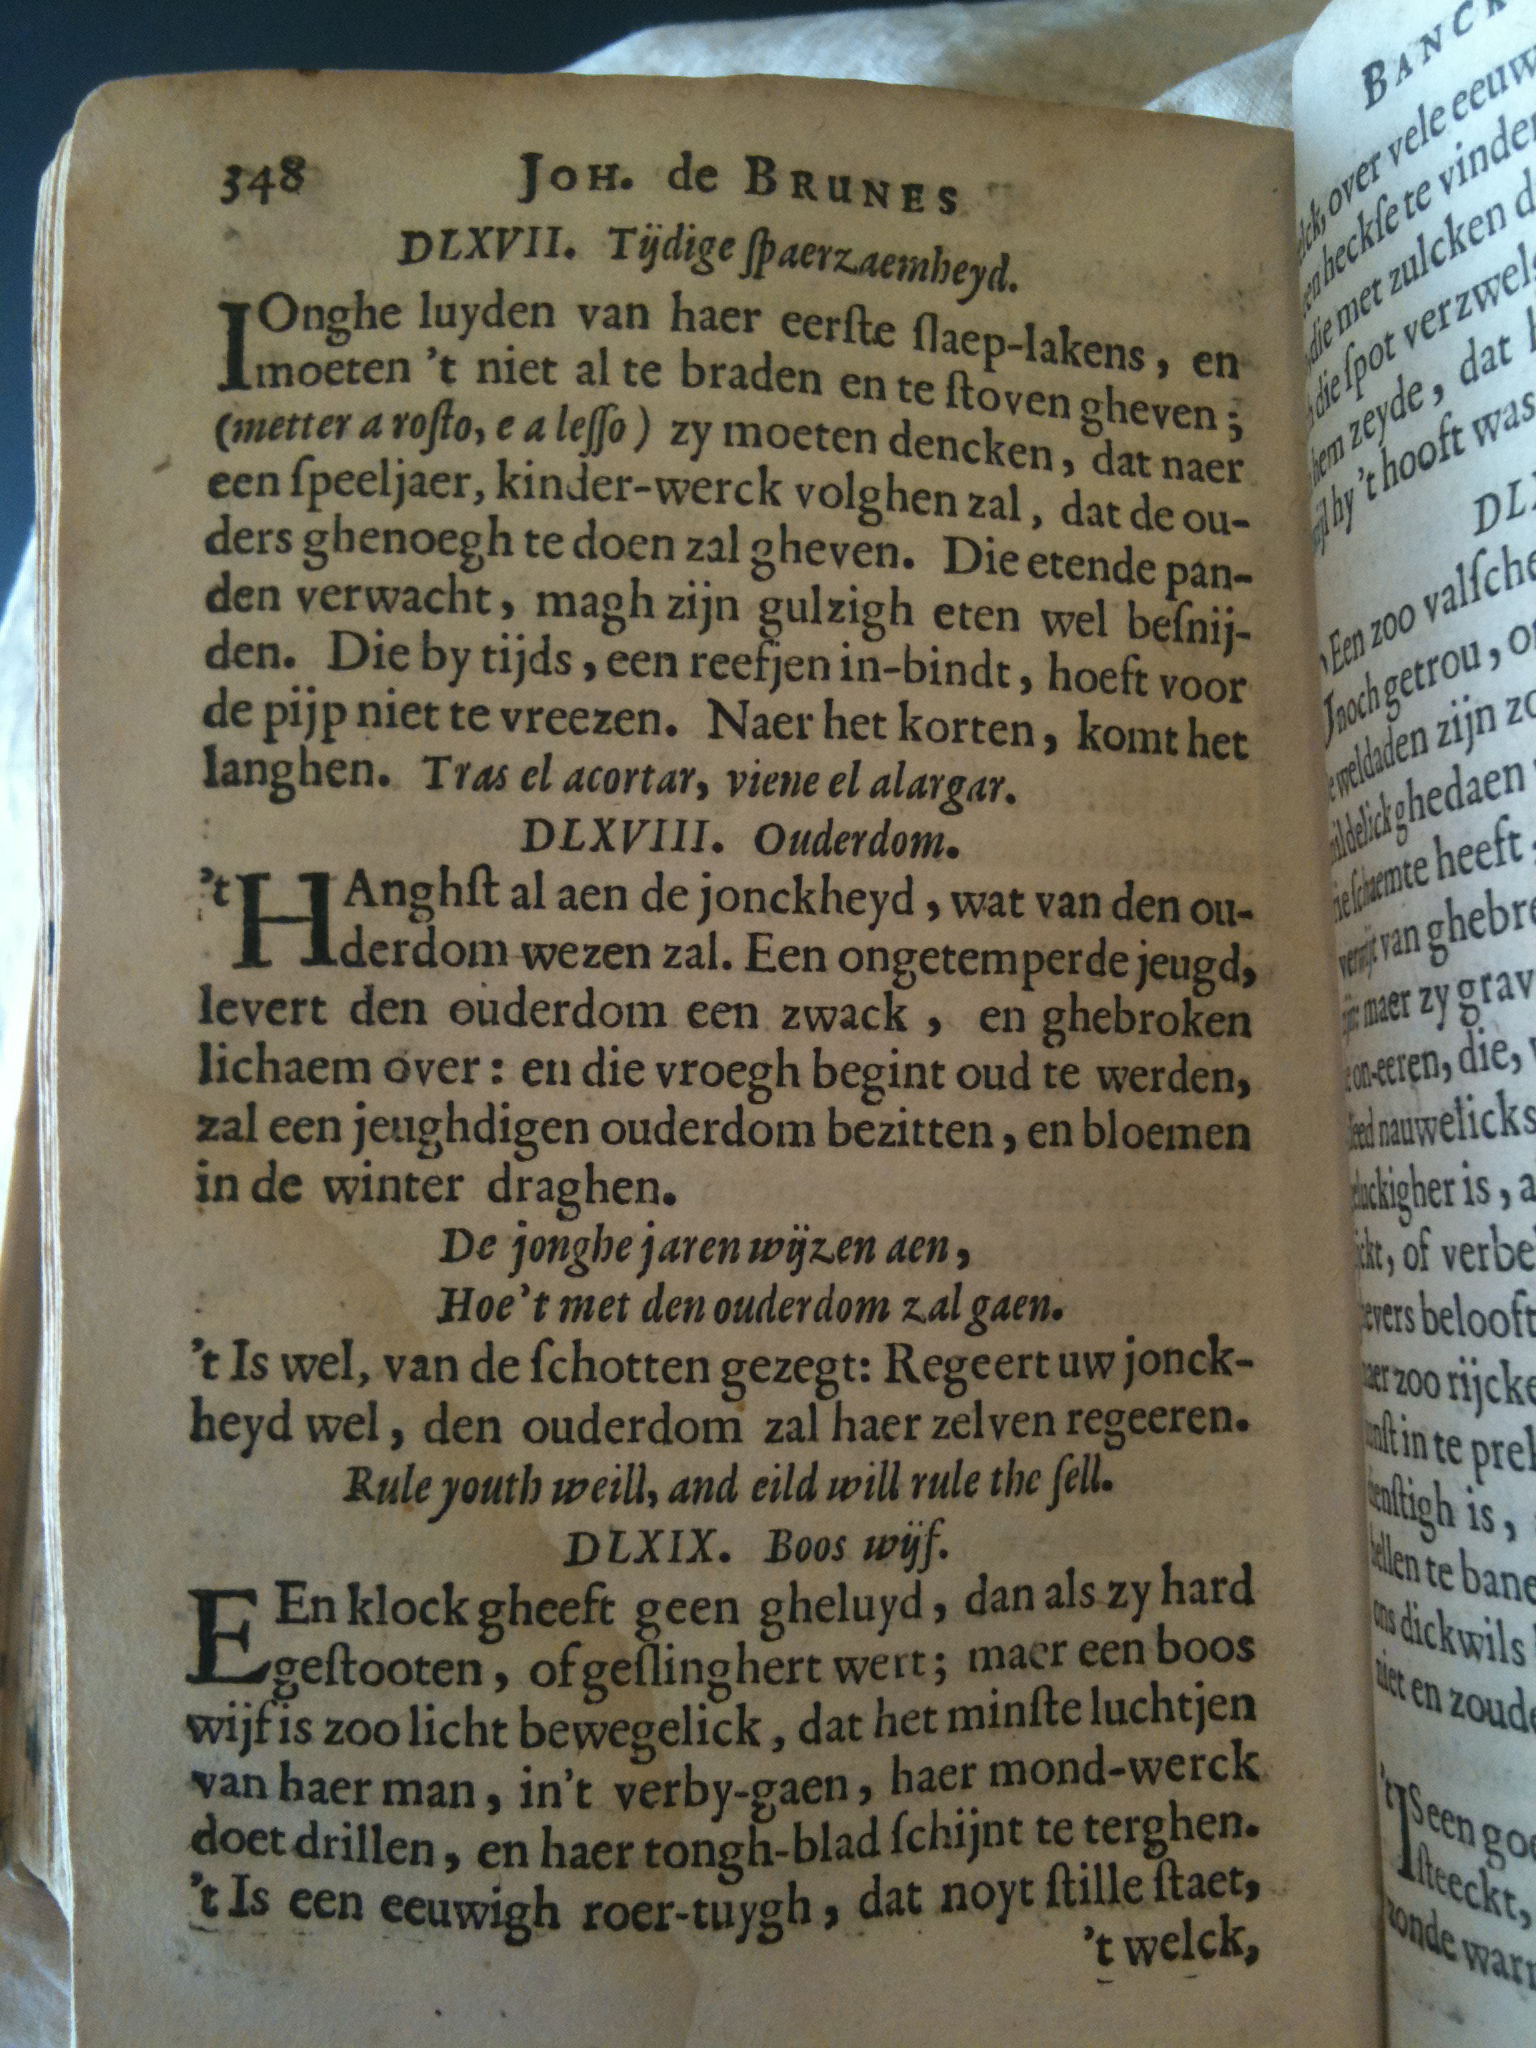 348 JOH. de BRUNES
DLXVII. Tijdige ſpaerzaemheyd.
IOnghe luyden van haer eerſte ſlaep-lakens, en
moeten 't niet al te braden en te ſtoven gheven;
(metter a roſto, e a leſſo) zy moeten dencken, dat naer
een ſpeeljaer, kinder-werck volghen zal, dat de ou-
ders ghenoegh te doen zal gheven. Die etende pan-
den verwacht, magh zijn gulzigh eten wel beſnij-
den. Die by tijds, een reefjen in-bindt, hoeft voor
de pijp niet te vreezen. Naer het korten, komt het
langhen. Tras el acortar, viene el alargar.
DLXVIII. Ouderdom.
'tHAnghſt al aen de jonckheyd, wat van den ou-
derdom wezen zal. Een ongetemperde jeugd,
levert den ouderdom een zwack, en ghebroken
lichaem over: en die vroegh begint oud te werden,
zal een jeughdigen ouderdom bezitten, en bloemen
in de winter draghen.
De jonghe jaren wijzen aen,
Hoe't met den ouderdom zal gaen.
't Is wel, van de ſchotten gezegt: Regeert uw jonck-
heyd wel, den ouderdom zal haer zelven regeeren.
Rule youth weill, and eild will rule the ſell.
DLXIX. Boos wijf.
EEn klock gheeft geen gheluyd, dan als zy hard
geſtooten, of geſlinghert wert; maer een boos
wijf is zoo licht bewegelick, dat het minſte luchtjen
van haer man, in't verby-gaen, haer mond-werck
doet drillen, en haer tongh-blad ſchijnt te terghen.
't Is een eeuwigh roer-tuygh, dat noyt ſtille ſtaet,
't welck,
over vele
heckſe te
die met zulcken
die ſpot
hem zeyde, dat
hy 't hooft was
Een zoo
noch getrou,
weldaden zijn
ghedaen
heeft
van
maer zy
on-eeren, die,
nauwelicks
is,
of
belooft
zoo
in te
is,
te
dickwils
niet en
'tIS een
ſteeckt,
zonde